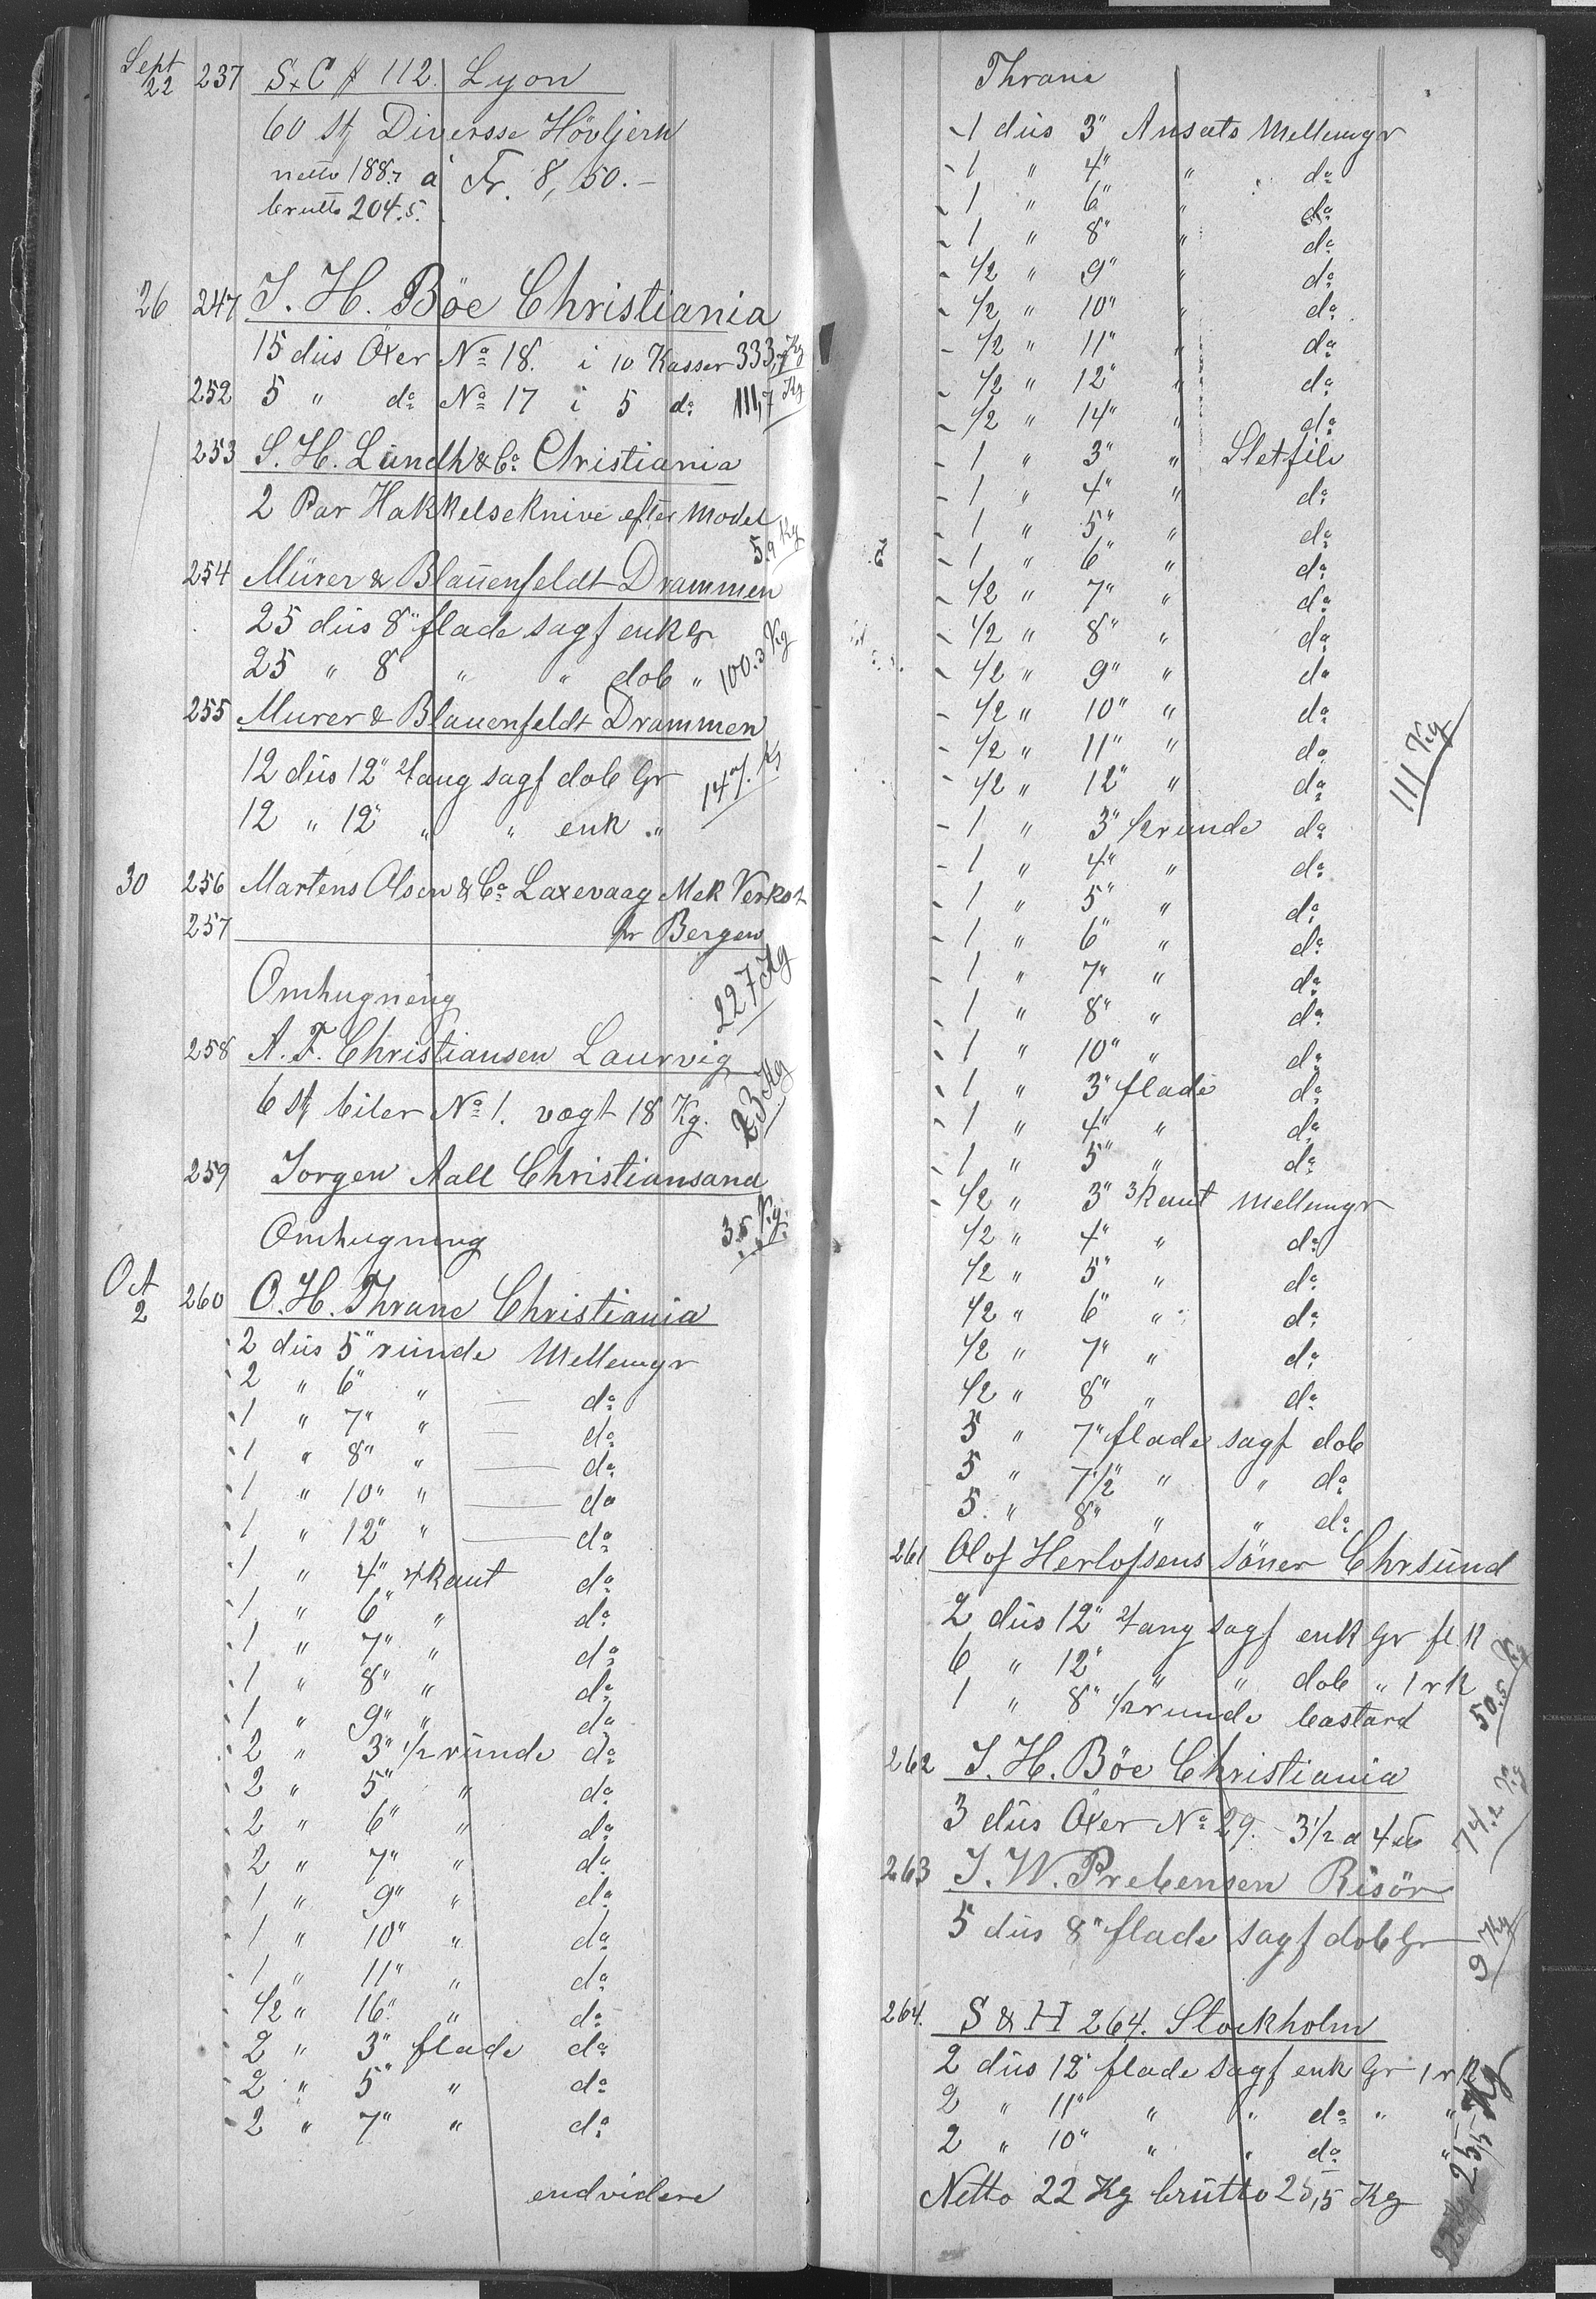 Sept 22 237 S & C # 112. Lyon
60 St Diversse Hövljern
netto 188.7 à Fr. 8,50.-
brutto 204.5.
26 247 I. H. Böe Christiania
15 dus Öxer No 18. i 10 Kasser 333,7 Kg
252 5 " do No 17 i 5 do 111,7 Kg
253 S. H. Lundh & Co Christiania
2 Par Hakkelseknive efter Model
5.9 Kg
254 Mürer & Blauenfeldt Drammen
25 dus 8" flade sagf enk Gr
25 " 8 " " dob " 100.3 Kg
255 Murer & Blauenfeldt Drammen
12 dus 12" 4ang sagf dob Gr
12 " 12" " " enk " 147. Kg
30 256 Martens Olsen & Co Laxevaag Mek Verkst
257 pr Bergen
Omhugning 227 Kg
258 A. F. Christiansen Laurvig
6 St biler No 1. vogt 18 Kg. 23 Kg
259 Jorgen Aall Christiansand
Omhugning 3.5 Kg.
Oct 2 260 O. H. Thrane Christiania
2 dus 5" runde Mellemgr
2 " 6" " — do
1 " 7" " — do
1 " 8" " — do
1 " 10" " — do
1 " 12" " — do
1 " 4" 4kant do
1 " 6" " do
1 " 7" " do
1 " 8" " do
1 " 9" " do
2 " 3" 1/2 runde do
2 " 5" " do
2 " 6" " do
2 " 7" " do
1 " 9" " do
1 " 10" " do
1 " 11" " do
1/2 " 16" " do
2 " 3" flade do
2 " 5" " do
2 " 7" " do
endvidere
Thrane
1 dus 3" Ansats Mellemgr
1 " 4" " do
1 " 6" " do
1 " 8" " do
1/2 " 9" " do
1/2 " 10" " do
1/2 " 11" " do
1/2 " 12" " do
1/2 " 14" " do
1 " 3" " Sletfile
1 " 4" " do
1 " 5" " do
1 " 6" " do
1/2 " 7" " do
1/2 " 8" " do
1/2 " 9" " do
1/2 " 10" " do
1/2 " 11" " do
1/2 " 12" " do
111 Kg
1 " 3" 1/2 runde do
1 " 4" " do
1 " 5" " do
1 " 6" " do
1 " 7" " do
1 " 8" " do
1 " 10" " do
1 " 3" flade do
1 " 4" " do
1 " 5" " do
1/2 " 3" 3kant Mellemgr
1/2 " 4" " do
1/2 " 5" " do
1/2 " 6" " do
1/2 " 7" " do
1/2 " 8" " do
5 " 7" flade sagf dob
5 " 7 1/2" " " do
5 " 8" " " do
261 Olof Herlofsens Söner Chrsund
2 dus 12" 4ang sagf enk Gr fl. K
6 " 12" " " dob " 1 r K
1 " 8" 1/2 runde bastard 50.5 Kg
262 I. H. Böe Christiania
3 dus Öxer No 29. 3 1/2 a 4 ℔ 74.2 Kg
263 J. W. Prebensen Risör
5 dus 8" flade sagf dob Gr 9 Kg
264. S & H 264. Stockholm
2 dus 12" flade sagf enk Gr 1 r K
2 " 11" " " do " "
2 " 10" " " do "
25,5 Kg
Netto 22 Kg brutto 25,5 Kg